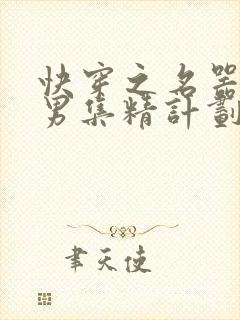 快穿之名器
男集精計劃
聿天使